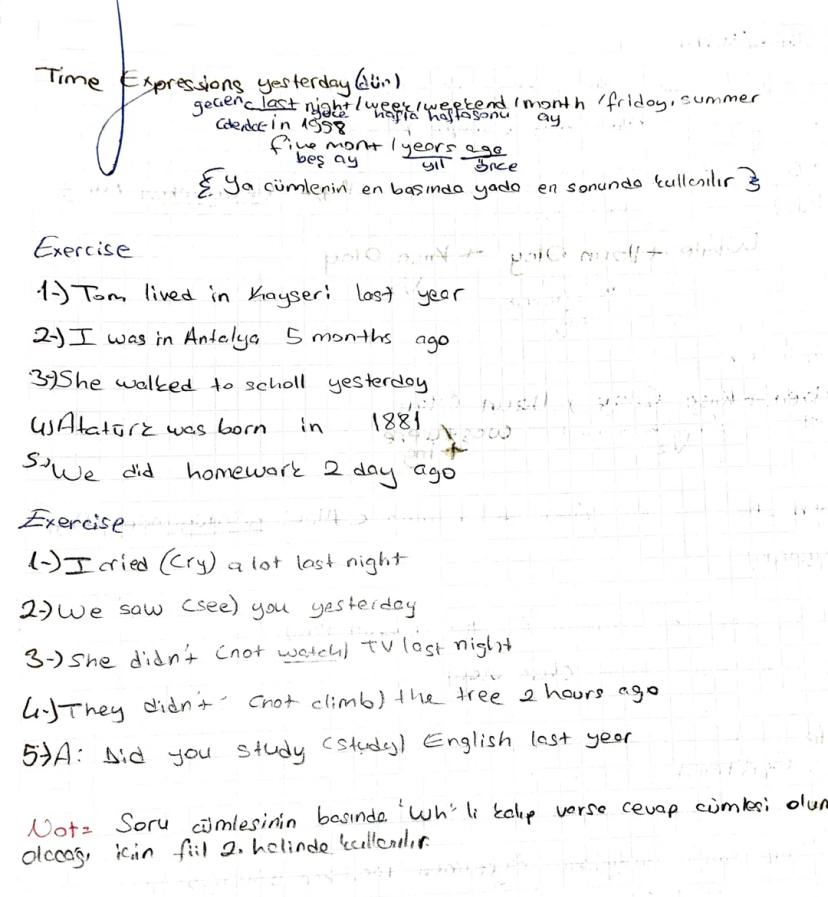 Time Expressions yesterday (dün)
geçen last night / week / weekend / month / friday, summer
gece hafta haftasonu ay
in 1998
five mont / years ago
beş ay yıl önce
{ Ya cümlenin en basında yada en sonunda kullanılır }
Exercise
1-) Tom lived in Kayseri last year
2-) I was in Antalya 5 months ago
3-) She walked to scholl yesterday
4) Atatürk was born in 1881
5-) We did homework 2 day ago
Exercise
1-) I cried (cry) a lot last night
2-) We saw (see) you yesterday
3-) She didn't (not watch) TV last night
4-) They didn't (not climb) the tree 2 hours ago
5-) A: Did you study (study) English last year
Not= Soru cümlesinin basında 'Wh' li kalıp varsa cevap cümlesi olum
olacağı için fiil 2. halinde kullanılır.